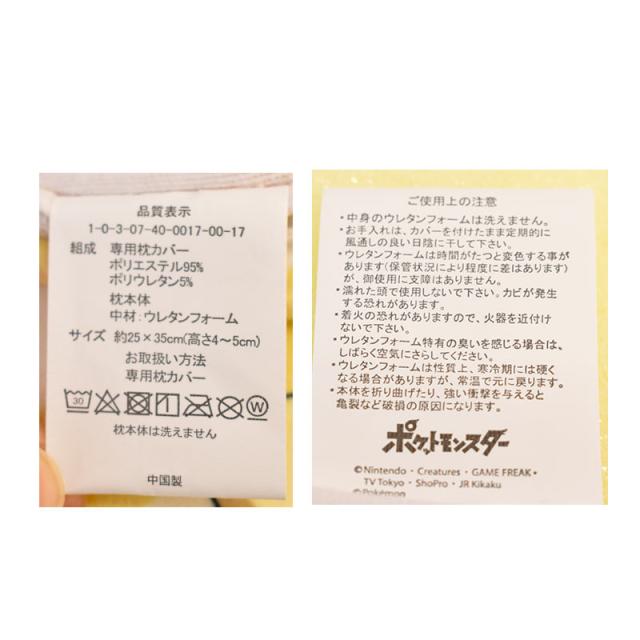 品質表示
1-0-3-07-40-0017-00-17
組成 専用枕カバー
ポリエステル95%
ポリウレタン5%
枕本体
中材:ウレタンフォーム
サイズ 約25×35cm(高さ4~5cm)
お取扱い方法
専用枕カバー
30
W
枕本体は洗えません
中国製
ご使用上の注意
・中身のウレタンフォームは洗えません。
・お手入れは、カバーを付けたまま定期的に
風通しの良い日陰に干して下さい。
・ウレタンフォームは時間がたつと変色する事が
あります(保管状況により程度に差はあります)
が、御使用に支障はありません。
・濡れた頭で使用しないで下さい。カビが発生
する恐れがあります。
・着火の恐れがありますので、火器を近付け
ないで下さい。
・ウレタンフォーム特有の臭いを感じる場合は、
しばらく空気にさらしてください。
・ウレタンフォームは性質上、寒冷期には硬く
なる場合がありますが、常温で元に戻ります。
・本体を折り曲げたり、強い衝撃を与えると
亀裂など破損の原因になります。
ポケットモンスター
©Nintendo・Creatures・GAME FREAK・
TV Tokyo・ShoPro・JR Kikaku
©Pokémon